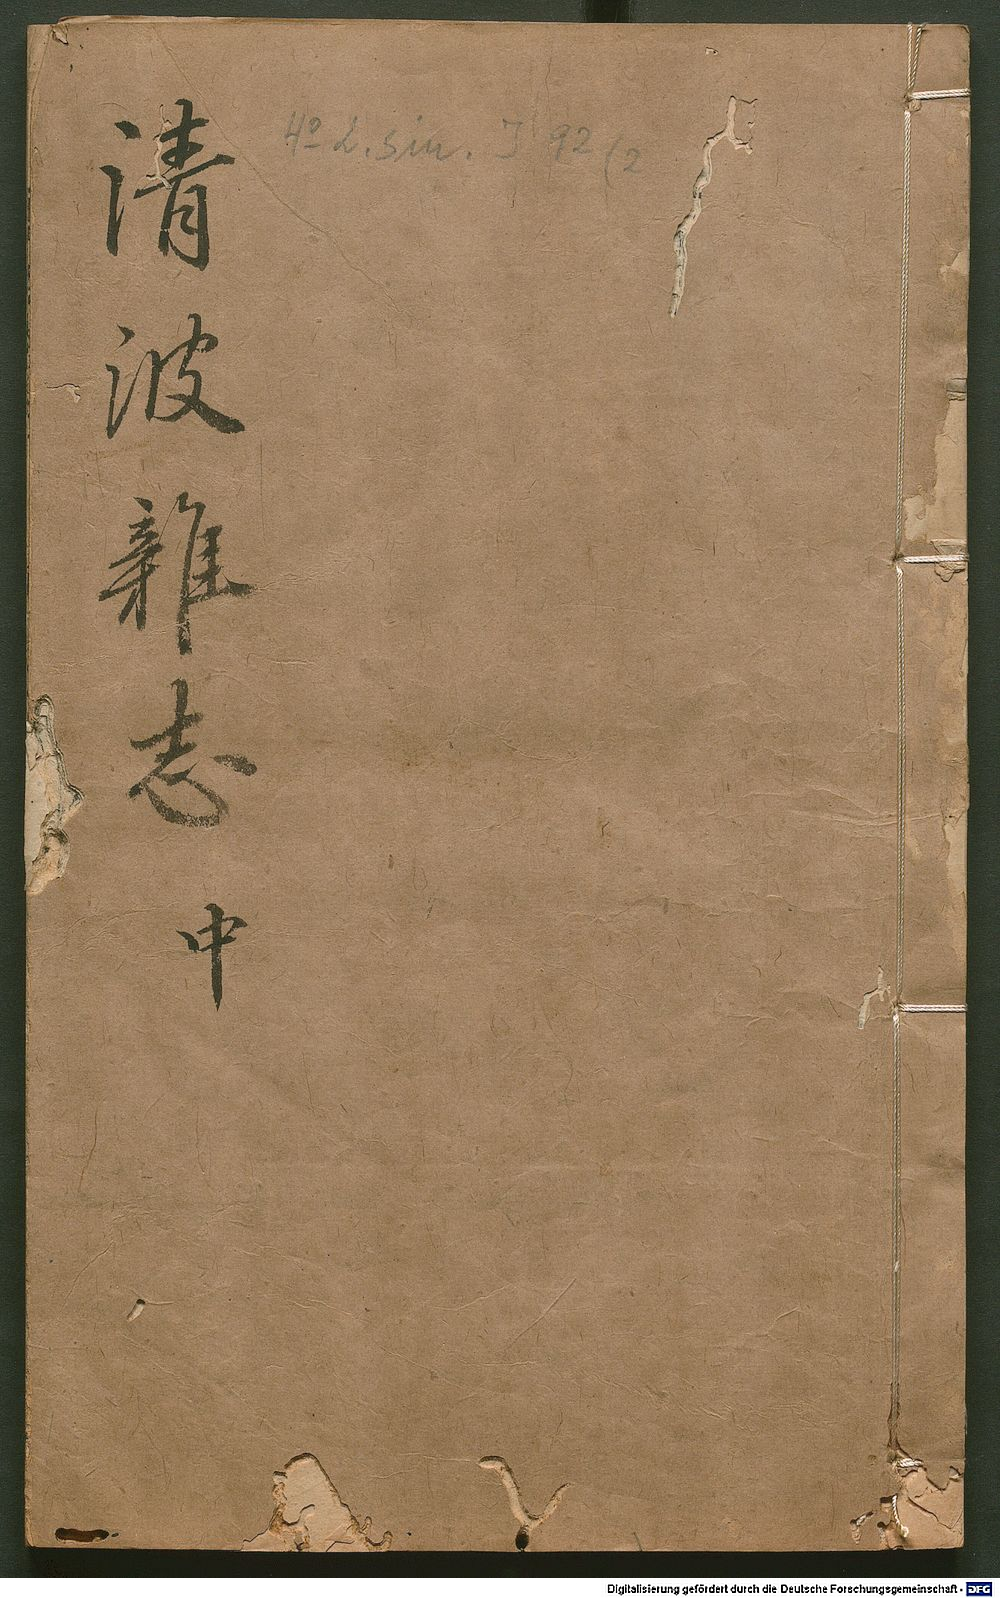 清波雜志 中
4° L. sin. I 92 (2
Digitalisierung gefördert durch die Deutsche Forschungsgemeinschaft - DFG